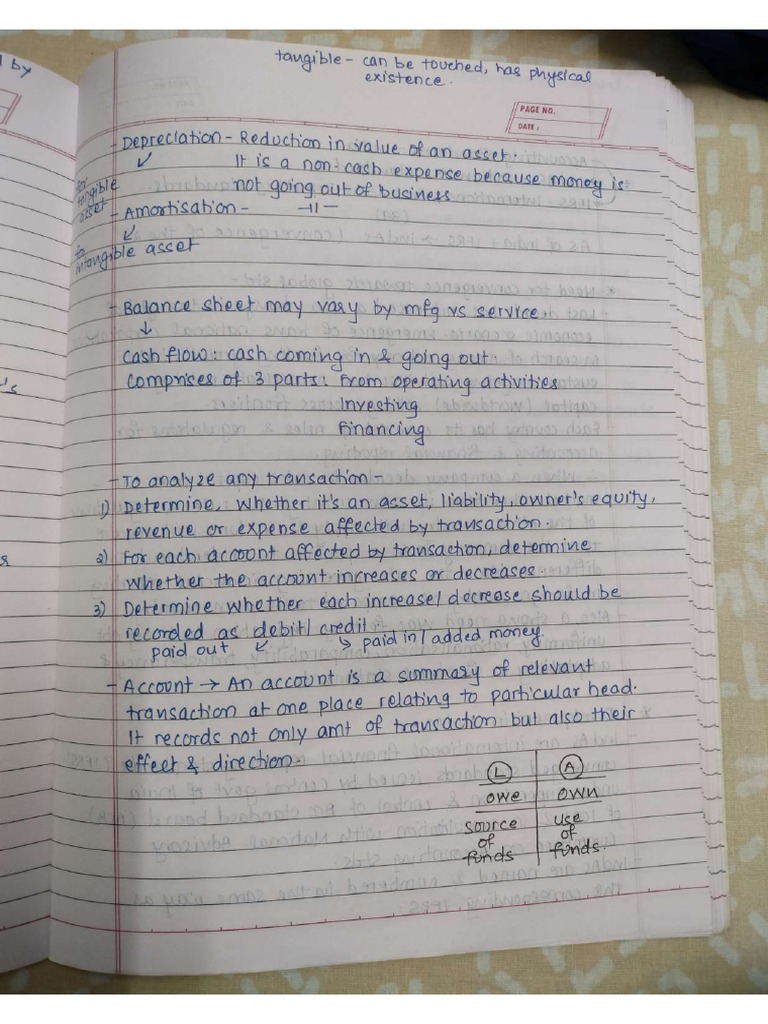 d by
tangible - can be touched, has physical
existence.
PAGE NO.
DATE :
- Depreciation - Reduction in value of an asset.
↙ It is a non-cash expense because money is
for tangible asset
not going out of business
- Amortisation - -||-
↙
for intangible asset
- Balance sheet may vary by mfg vs service.
↓
cash flow: cash coming in & going out
comprises of 3 parts: From operating activities
Investing
Financing
- To analyze any transaction -
1) Determine, whether it's an asset, liability, owner's equity,
revenue or expense affected by transaction.
2) For each account affected by transaction, determine
whether the account increases or decreases.
3) Determine whether each increase/decrease should be
recorded as debit/credit.
paid out ↙ ↘ paid in/added money.
- Account → An account is a summary of relevant
transaction at one place relating to particular head.
It records not only amt of transaction but also their
effect & direction.
L A
owe own
source use
of of
funds funds.
's